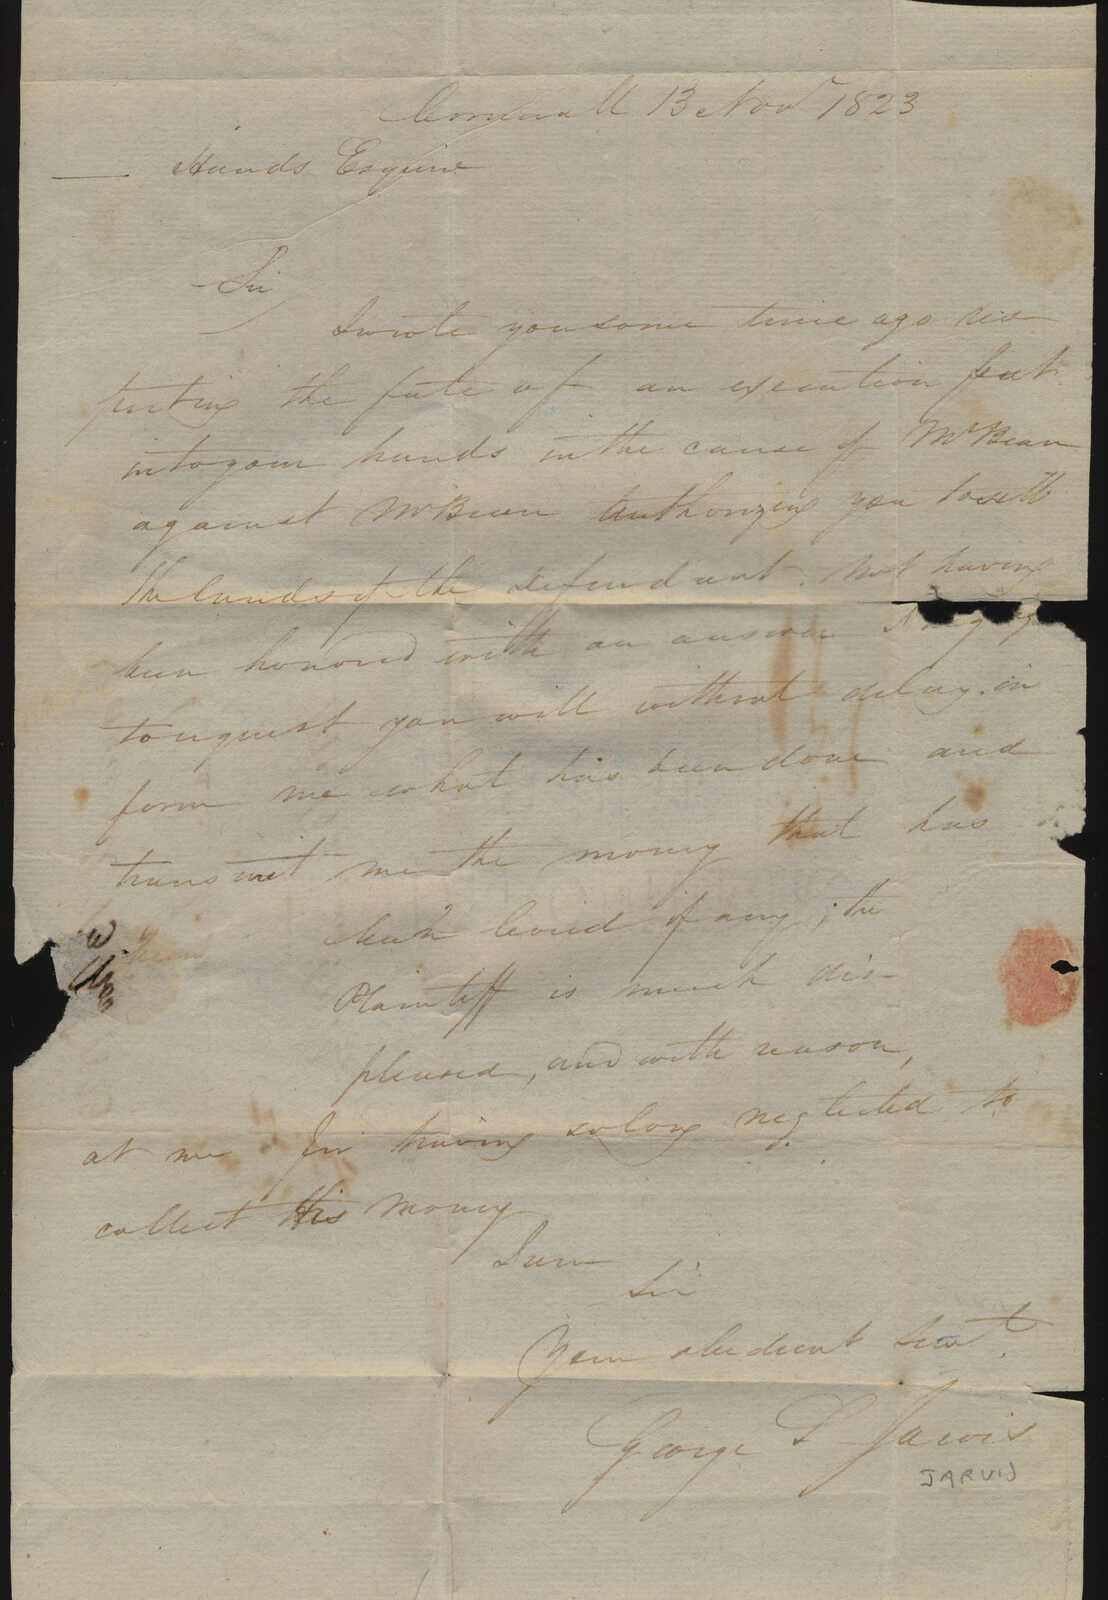 Cornwall 13 Nov 1823
— Hands Esquire
Sir
I wrote you some time ago res
pecting the fate of an execution put
into your hands in the cause of McBean
against McBean authorizing you to sell
the lands of the defendant. Not having
been honored with an answer I beg
to request you will without delay in
form me what has been done and
transmit me the money that has
been levied if any; the
Plaintiff is much dis-
pleased, and with reason,
at me for having so long neglected to
collect this money
I am
Sir
Your obedient Servt.
George S Jarvis
JARVIS